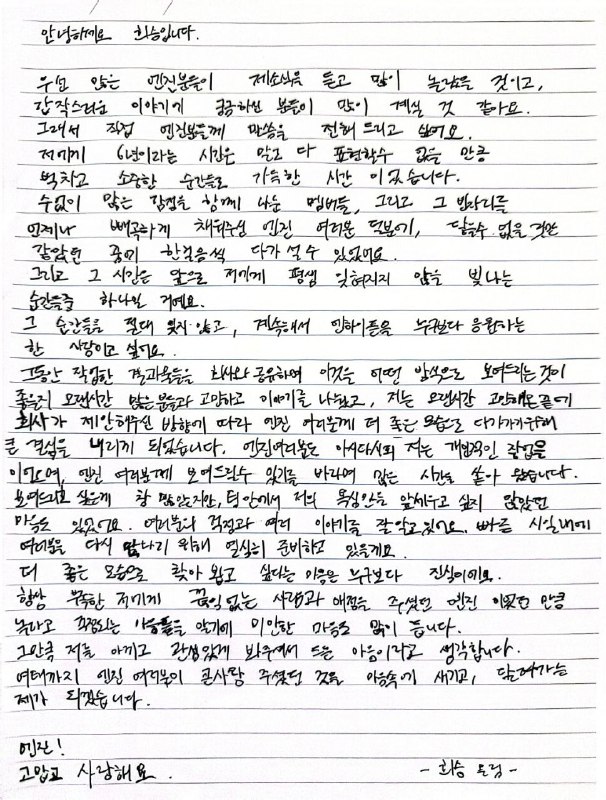 안녕하세요 희승입니다.
우선 많은 엔진분들이 제소식을 듣고 많이 놀랐을 것이고,
갑작스러운 이야기에 궁금하신 분들이 많이 계실 것 같아요.
그래서 직접 엔진분들께 말씀을 전해 드리고 싶어요.
저에게 6년이라는 시간은 말로 다 표현할수 없을 만큼
벅차고 소중한 순간들로 가득한 시간 이었습니다.
수없이 많은 감정을 함께 나눈 멤버들, 그리고 그 빈자리를
언제나 빼곡하게 채워주신 엔진 여러분 덕분에, 닿을수 없을 것만
같았던 꿈에 한걸음씩 다가 설 수 있었어요.
그리고 그 시간은 앞으로 저에게 평생 잊혀지지 않을 빛나는
순간들중 하나일 거예요.
그 순간들을 절대 잊지 않고, 계속해서 엔하이픈을 누구보다 응원하는
한 사람이고 싶어요.
그동안 작업한 결과물들을 회사와 공유하며 이것을 어떤 방식으로 보여드리는것이
좋을지 오랜시간 많은분들과 고민하고 이야기를 나눴고, 저는 오랜시간 고민해온끝에
회사가 제안해주신 방향에 따라 엔진 여러분께 더 좋은모습으로 다가가기위해
큰 결심을 내리게 되었습니다. 엔진여러분도 아시다시피 저는 개인적인 작업을
이어오며, 엔진 여러분께 보여드릴수 있기를 바라며 많은 시간을 쏟아 왔습니다.
보여드리고 싶은게 참 많았지만, 팀 안에서 저의 욕심만을 앞세우고 싶지 않았던
마음도 있었어요. 여러분의 걱정과 여러 이야기를 잘 알고있어요. 빠른 시일내에
여러분을 다시 만나기 위해 열심히 준비하고 있을게요.
더 좋은 모습으로 찾아 뵙고 싶다는 마음은 누구보다 진심이에요.
항상 부족한 저에게 끊임없는 사랑과 애정을 주셨던 엔진 이었던 만큼
놀라고 걱정되는 마음들을 알기에 미안한 마음도 많이 듭니다.
그만큼 저를 아끼고 관심있게 봐주셔서 드는 마음이라고 생각합니다.
여태까지 엔진 여러분이 큰사랑 주셨던 것을 마음속에 새기고, 달려가는
제가 되겠습니다.
엔진!
고맙고 사랑해요. - 희승 드림 -